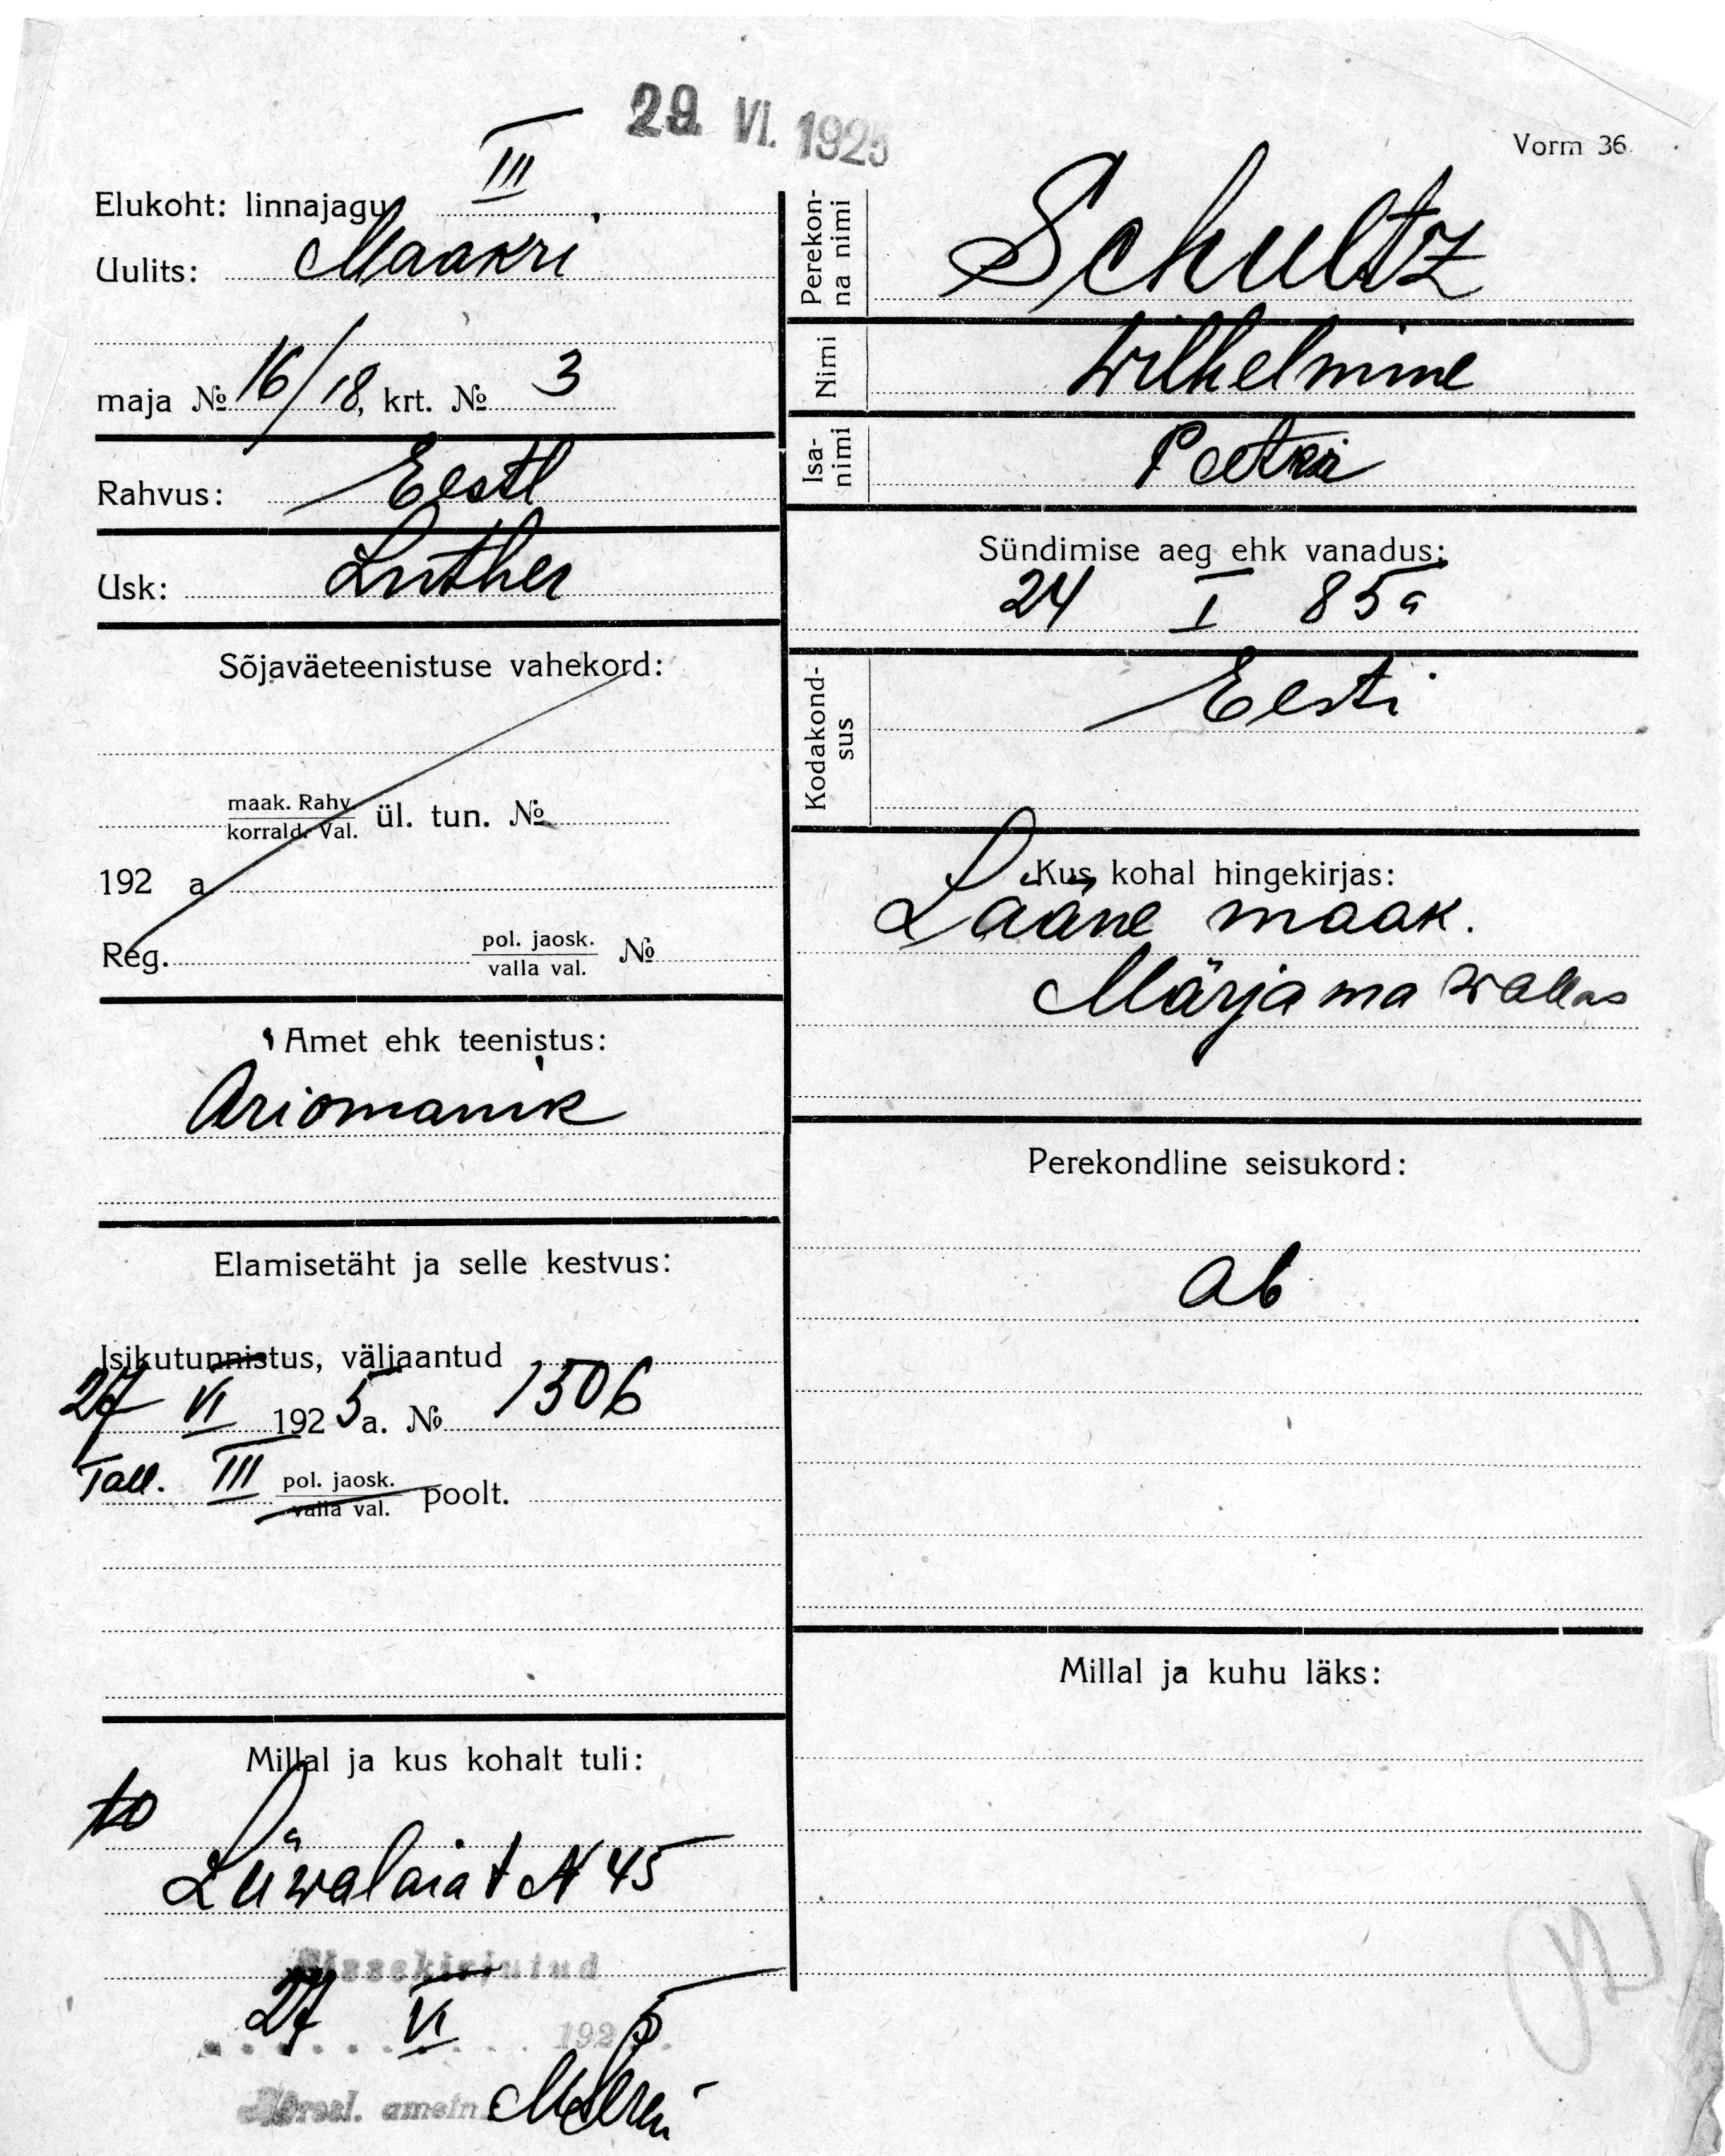 29. VI. 1925
Vorm 36.
Elukoht: linnajagu III
Uulits: Maakri
maja № 16/18, krt. № 3
Rahvus: Eestl
Usk: Luther
Sõjaväeteenistuse vahekord:
maak. Rahv.
korrald. Val. ül. tun. №
192 a
Reg. pol. jaosk. №
valla val.
Amet ehk teenistus:
Ariomanik
Elamisetäht ja selle kestvus:
Isikutunnistus, väljaantud
27 VI 1925 a. № 1506
Tall. III pol. jaosk. poolt.
valla val.
Millal ja kus kohalt tuli:
Liiwalaia t N 45
Sissekirjutud
27 VI 1925.
Perekon-
na nimi Schultz
Nimi Wilhelmine
Isa-
nimi Peetri
Sündimise aeg ehk vanadus:
24 I 85 a
Kodakond-
sus Eesti
Kus kohal hingekirjas:
Lääne maak.
Märjama wallas
Perekondline seisukord:
ab
Millal ja kuhu läks: